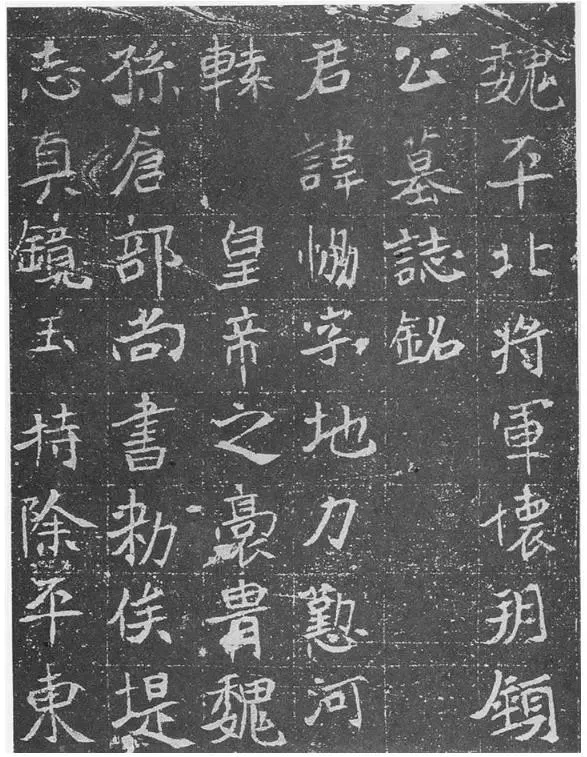 魏平北将軍懷朔鎮
公墓誌銘
君諱恊字地力懃河
轅 皇帝之裔冑魏
孫倉部尚書勑俟堤
志真鏡玉持除平東